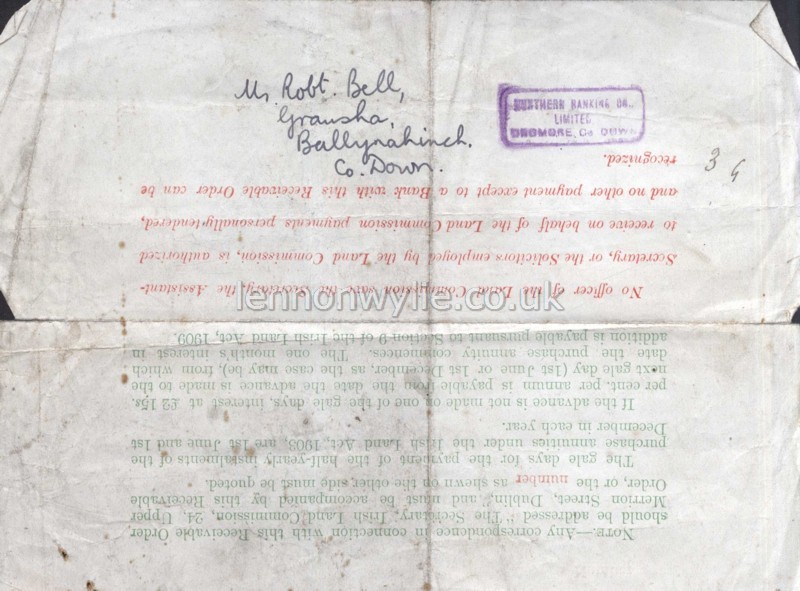 Mr. Robt. Bell,
Gransha,
Ballynahinch.
Co. Down.
NORTHERN BANKING CO.,
LIMITED
DROMORE, Co. DOWN
3 4
lennonwylie.co.uk
NOTE.—Any correspondence in connection with this Receivable Order
should be addressed "The Secretary, Irish Land Commission, 24, Upper
Merrion Street, Dublin," and must be accompanied by this Receivable
Order, or the number as shewn on the other side must be quoted.
The gale days for the payment of the half-yearly instalments of the
purchase annuities under the Irish Land Act, 1903, are 1st June and 1st
December in each year.
If the advance is not made on one of the gale days, interest at £2 15s.
per cent. per annum is payable from the date the advance is made to the
next gale day (1st June or 1st December, as the case may be), from which
date the purchase annuity commences. The one month's interest in
addition is payable pursuant to Section 9 of the Irish Land Act, 1909.
No officer of the Land Commission save the Secretary, the Assistant-
Secretary, or the Solicitors employed by the Land Commission, is authorized
to receive on behalf of the Land Commission payments personally tendered,
and no other payment except to a Bank with this Receivable Order can be
recognized.